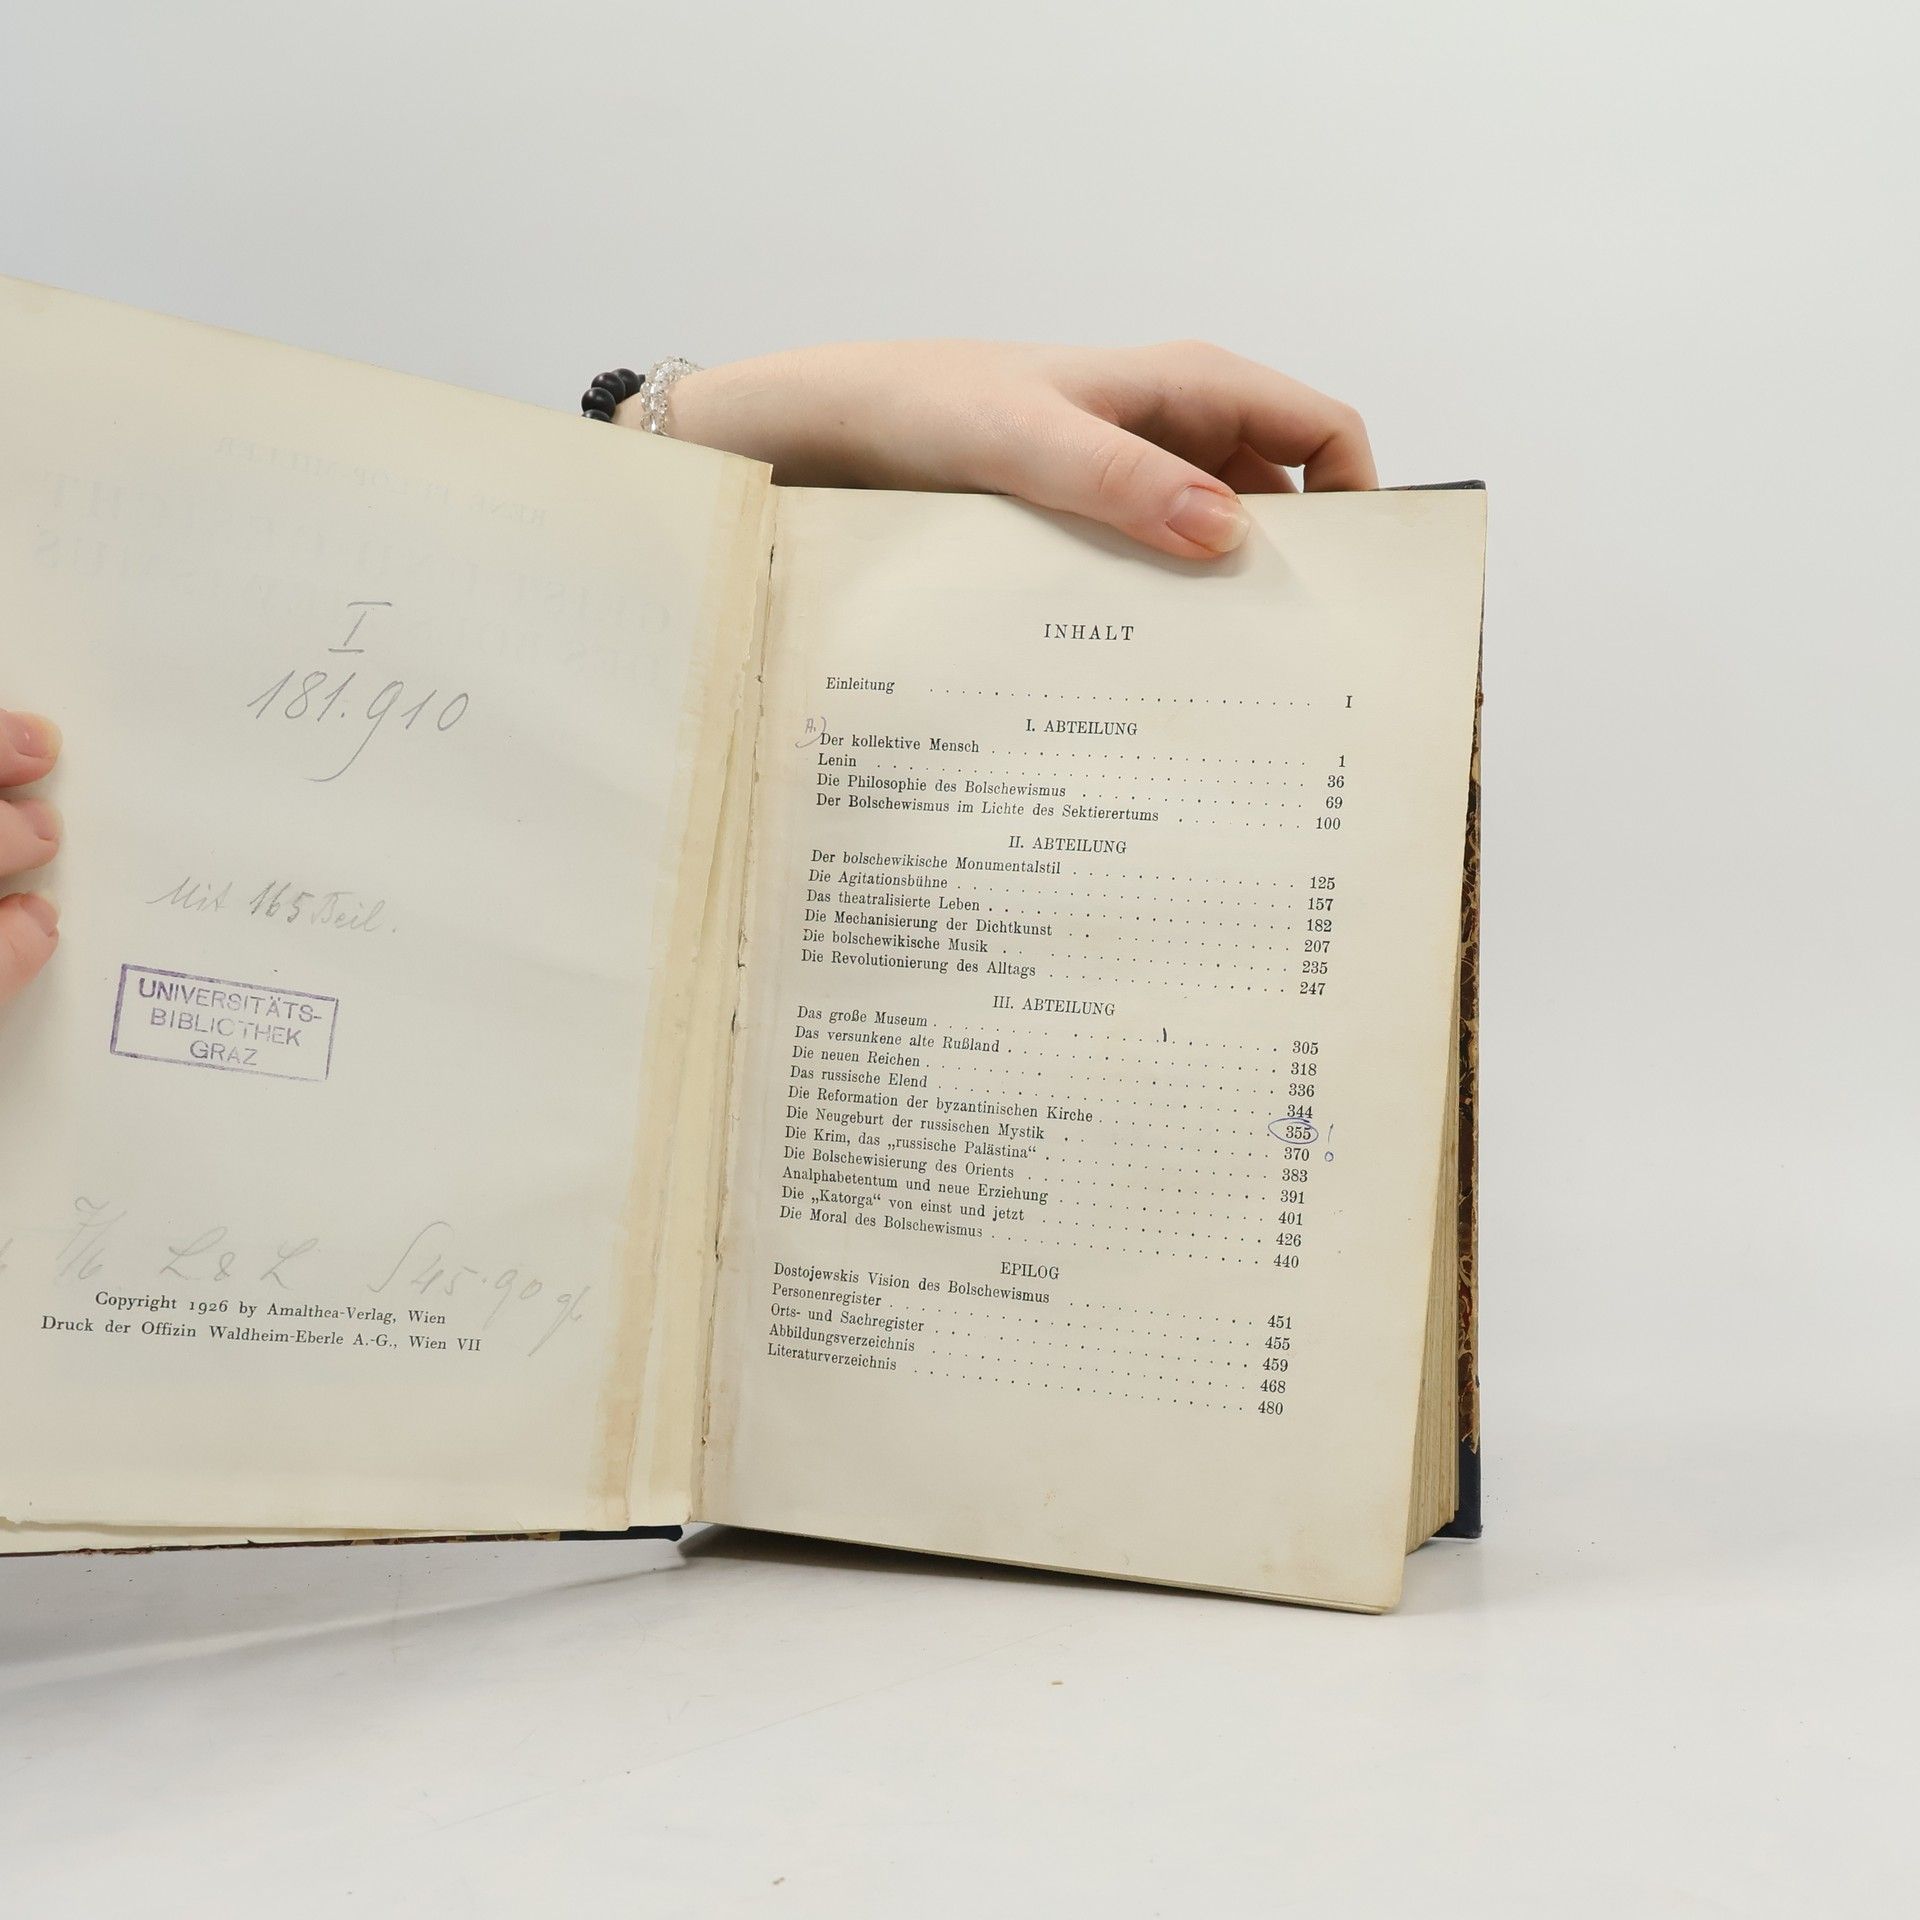 I
181.910
Mit 165 Beil.
UNIVERSITÄTS-
BIBLIOTHEK
GRAZ
7/6 L & L S 45.90
Copyright 1926 by Amalthea-Verlag, Wien
Druck der Offizin Waldheim-Eberle A.-G., Wien VII
INHALT
Einleitung . . . . . . . . . . I
I. ABTEILUNG
A.) Der kollektive Mensch . . . . . . . . . . 1
Lenin . . . . . . . . . . 36
Die Philosophie des Bolschewismus . . . . . . . . . . 69
Der Bolschewismus im Lichte des Sektierertums . . . . . . . . . . 100
II. ABTEILUNG
Der bolschewikische Monumentalstil . . . . . . . . . . 125
Die Agitationsbühne . . . . . . . . . . 157
Das theatralisierte Leben . . . . . . . . . . 182
Die Mechanisierung der Dichtkunst . . . . . . . . . . 207
Die bolschewikische Musik . . . . . . . . . . 235
Die Revolutionierung des Alltags . . . . . . . . . . 247
III. ABTEILUNG
Das große Museum . . . . . . . . . . 305
Das versunkene alte Rußland . . . . . . . . . . 318
Die neuen Reichen . . . . . . . . . . 336
Das russische Elend . . . . . . . . . . 344
Die Reformation der byzantinischen Kirche . . . . . . . . . . 355
Die Neugeburt der russischen Mystik . . . . . . . . . . 370
Die Krim, das „russische Palästina“ . . . . . . . . . . 383
Die Bolschewisierung des Orients . . . . . . . . . . 391
Analphabetentum und neue Erziehung . . . . . . . . . . 401
Die „Katorga“ von einst und jetzt . . . . . . . . . . 426
Die Moral des Bolschewismus . . . . . . . . . . 440
EPILOG
Dostojewskis Vision des Bolschewismus . . . . . . . . . . 451
Personenregister . . . . . . . . . . 455
Orts- und Sachregister . . . . . . . . . . 459
Abbildungsverzeichnis . . . . . . . . . . 468
Literaturverzeichnis . . . . . . . . . . 480